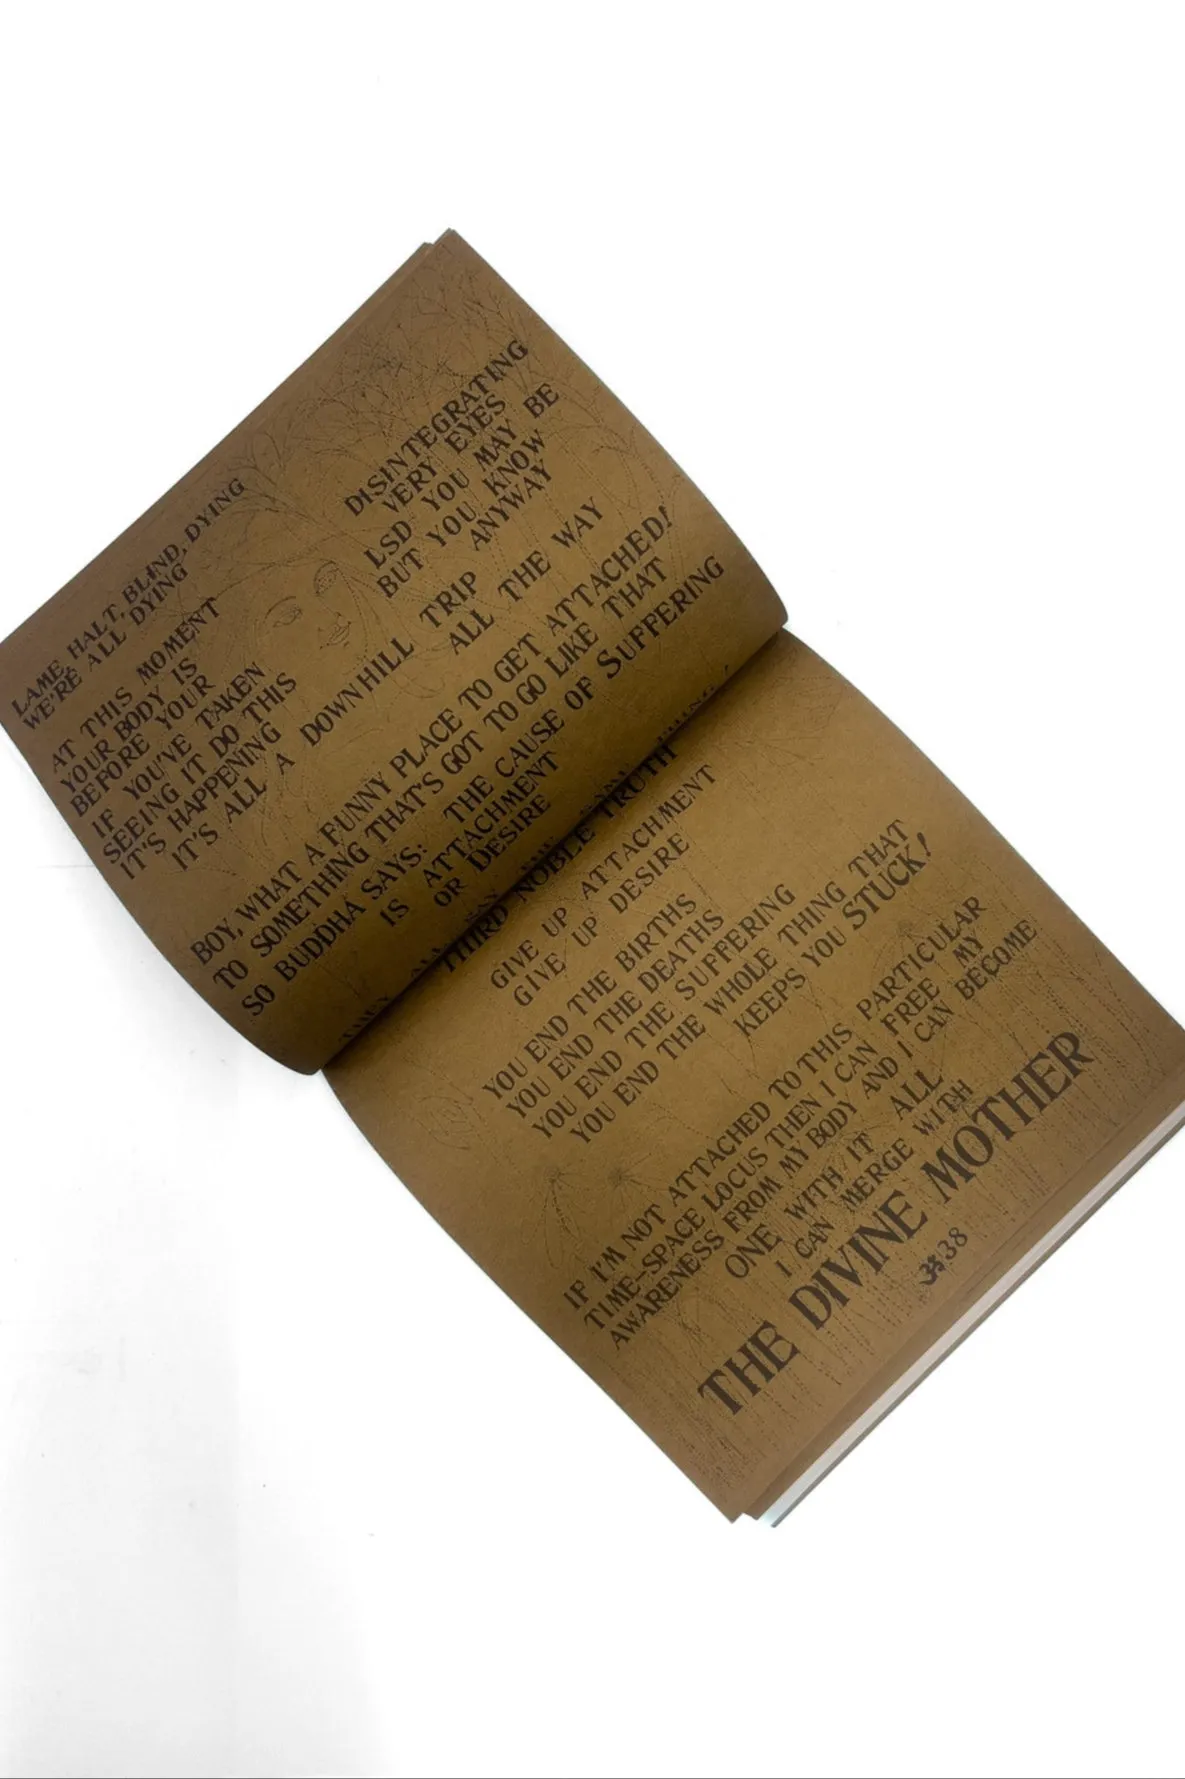 LAME, HALT, BLIND, DYING
WE'RE ALL DYING
AT THIS MOMENT
YOUR BODY IS DISINTEGRATING
BEFORE YOUR VERY EYES
IF YOU'VE TAKEN LSD YOU MAY BE
SEEING IT DO THIS BUT YOU KNOW
IT'S HAPPENING ANYWAY
IT'S ALL A DOWNHILL TRIP
ALL THE WAY
BOY, WHAT A FUNNY PLACE TO GET ATTACHED!
TO SOMETHING THAT'S GOT TO GO LIKE THAT
SO BUDDHA SAYS: THE CAUSE OF SUFFERING
IS ATTACHMENT
OR DESIRE
THIRD NOBLE TRUTH
GIVE UP ATTACHMENT
GIVE UP DESIRE
YOU END THE BIRTHS
YOU END THE DEATHS
YOU END THE SUFFERING
YOU END THE WHOLE THING THAT
KEEPS YOU STUCK!
IF I'M NOT ATTACHED TO THIS PARTICULAR
TIME-SPACE LOCUS THEN I CAN FREE MY
AWARENESS FROM MY BODY AND I CAN BECOME
ONE WITH IT ALL
I CAN MERGE WITH
THE DIVINE MOTHER
ॐ 38